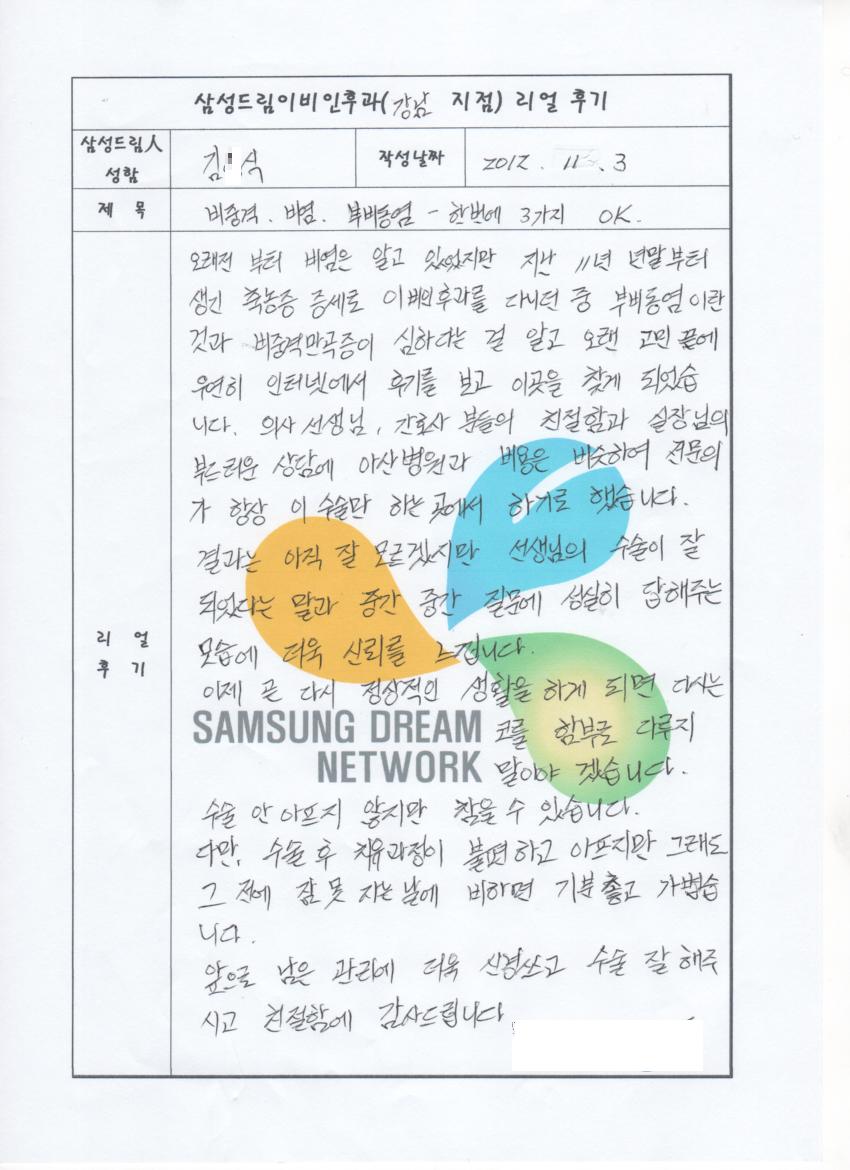 삼성드림이비인후과(강남 지점) 리얼 후기
삼성드림人 성함
김 식
작성날짜
2012. 11. 3
제 목
비중격. 비염. 부비동염 - 한번에 3가지 OK.
리 얼
후 기
오래전 부터 비염은 알고 있었지만 지난 11년 년말부터
생긴 축농증 증세로 이비인후과를 다니던 중 부비동염이란
것과 비중격만곡증이 심하다는 걸 알고 오랜 고민 끝에
우연히 인터넷에서 후기를 보고 이곳을 찾게 되었습
니다. 의사 선생님, 간호사 분들의 친절함과 실장님의
부드러운 상담에 아산병원과 비용은 비슷하여 전문의
가 항상 이 수술만 하는 곳에서 하기로 했습니다.
결과는 아직 잘 모르겠지만 선생님의 수술이 잘
되었다는 말과 중간 중간 질문에 성실히 답해주는
모습에 더욱 신뢰를 느낍니다.
이제 곧 다시 정상적인 생활을 하게 되면 다시는
코를 함부로 다루지
말아야 겠습니다.
SAMSUNG DREAM
NETWORK
수술 안 아프지 않지만 참을 수 있습니다.
다만, 수술 후 치유과정이 불편하고 아프지만 그래도
그 전에 잠 못 자는 날에 비하면 기분 좋고 가볍습
니다.
앞으로 남은 관리에 더욱 신경쓰고 수술 잘 해주
시고 친절함에 감사드립니다